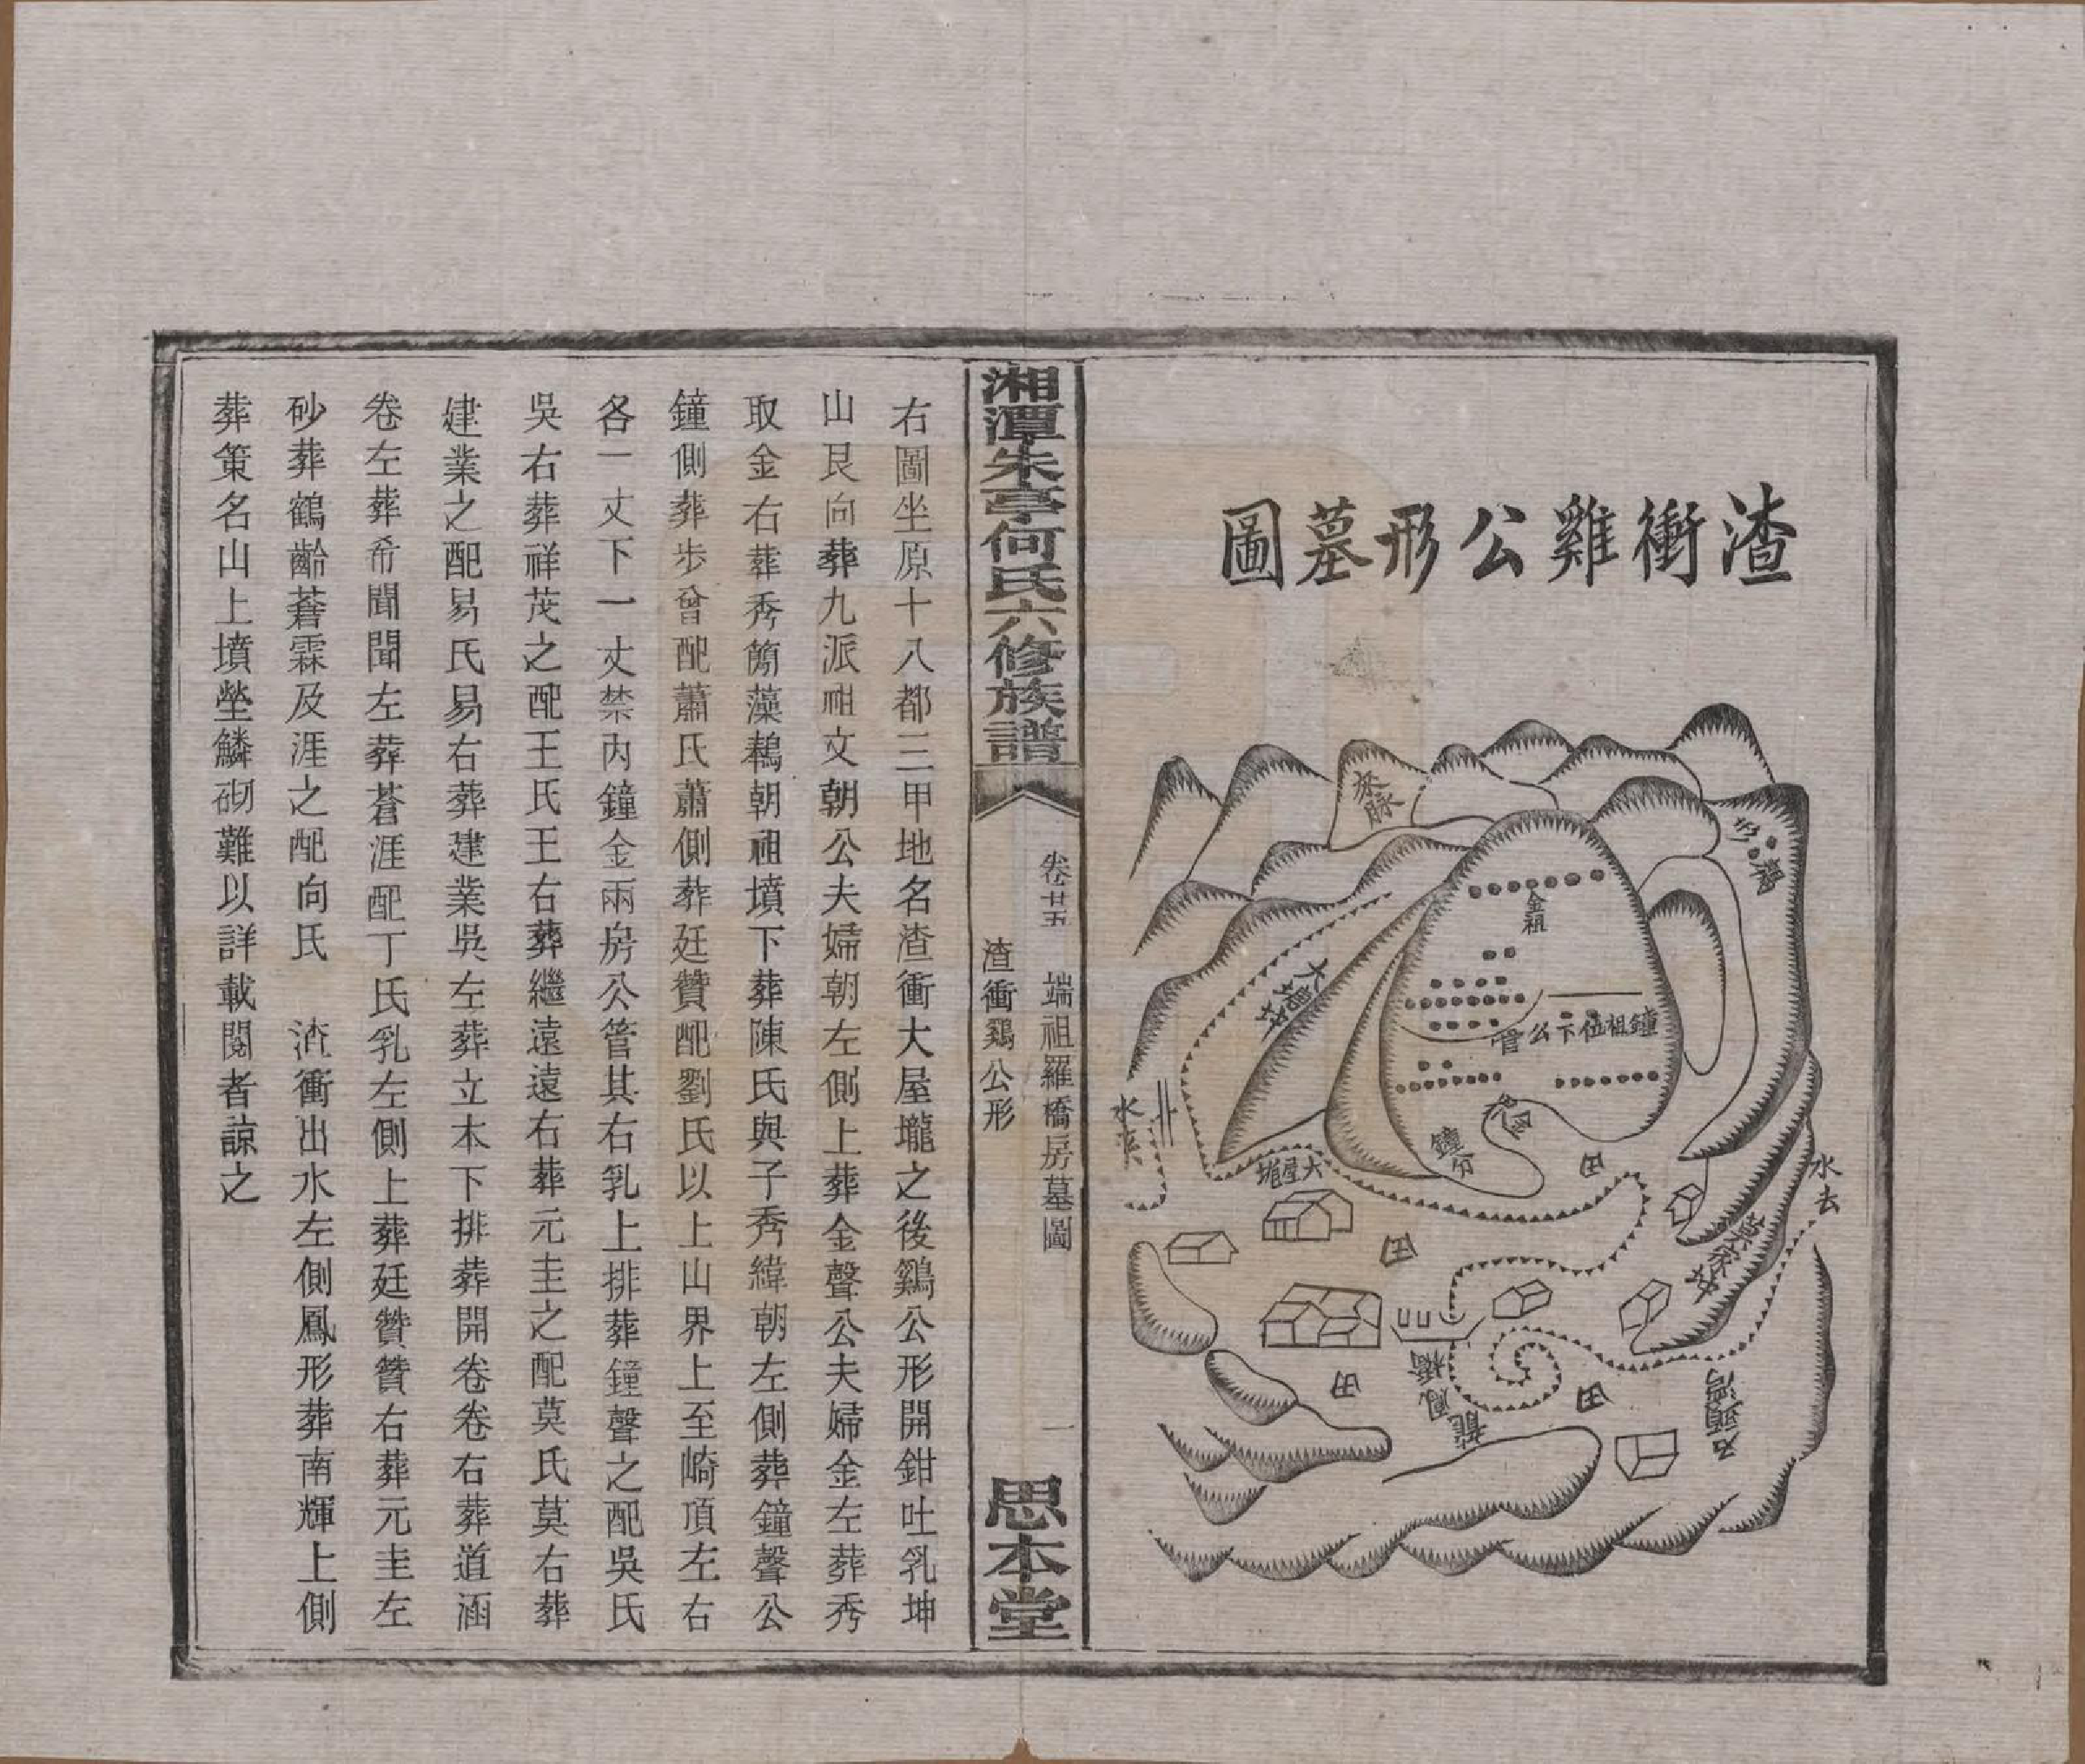 渣衝雞公形墓圖
來脈
金祖
鐘祖位下公管
大塘坪
大屋壠
鐘分
水來
水去
田
田
田
田
龍鳳橋
石頭灣
湘潭朱亭何氏六修族譜
卷廿五 端祖羅橋房墓圖 一
渣衝鷄公形
思本堂
右圖坐原十八都三甲地名渣衝大屋壠之後鷄公形開鉗吐乳坤
山艮向葬九派祖文朝公夫婦朝左側上葬金聲公夫婦金左葬秀
取金右葬秀簡藻鵝朝祖墳下葬陳氏與子秀緯朝左側葬鐘聲公
鐘側葬步曾配蕭氏蕭側葬廷贊配劉氏以上山界上至崎頂左右
各一丈下一丈禁內鐘金兩房公管其右乳上排葬鐘聲之配吳氏
吳右葬祥茂之配王氏王右葬繼遠遠右葬元圭之配莫氏莫右葬
建業之配易氏易右葬建業吳左葬立本下排葬開卷卷右葬道涵
卷左葬希聞聞左葬蒼涯配丁氏乳左側上葬廷贊贊右葬元圭左
砂葬鶴齡蒼霖及涯之配向氏 渣衝出水左側鳳形葬南輝上側
葬策名山上墳塋鱗砌難以詳載閱者諒之